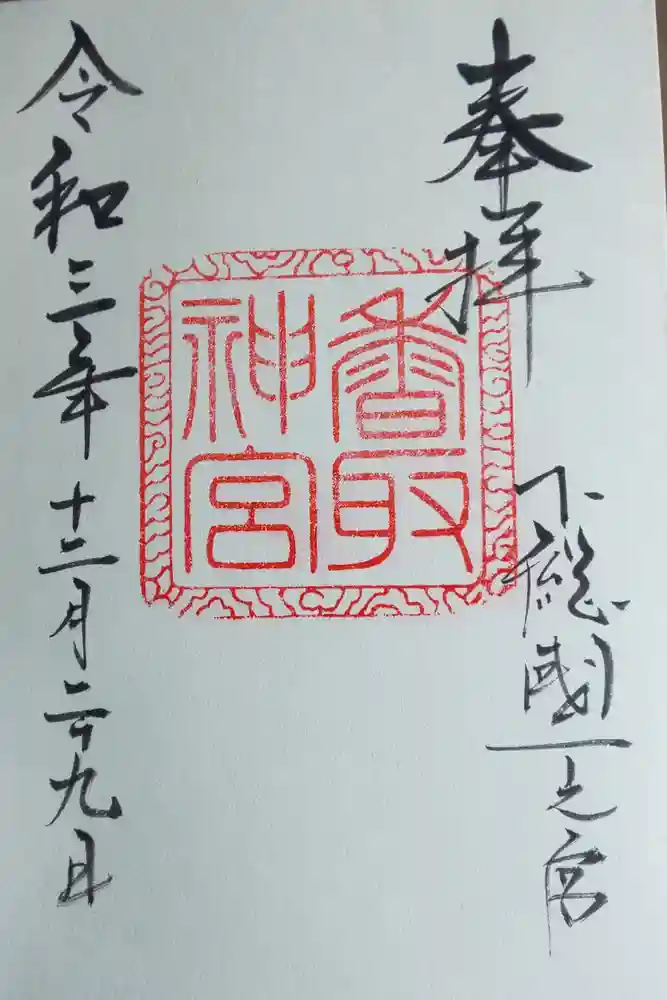 奉拝
下総國一之宮
香取
神宮
令和三年十二月二十九日